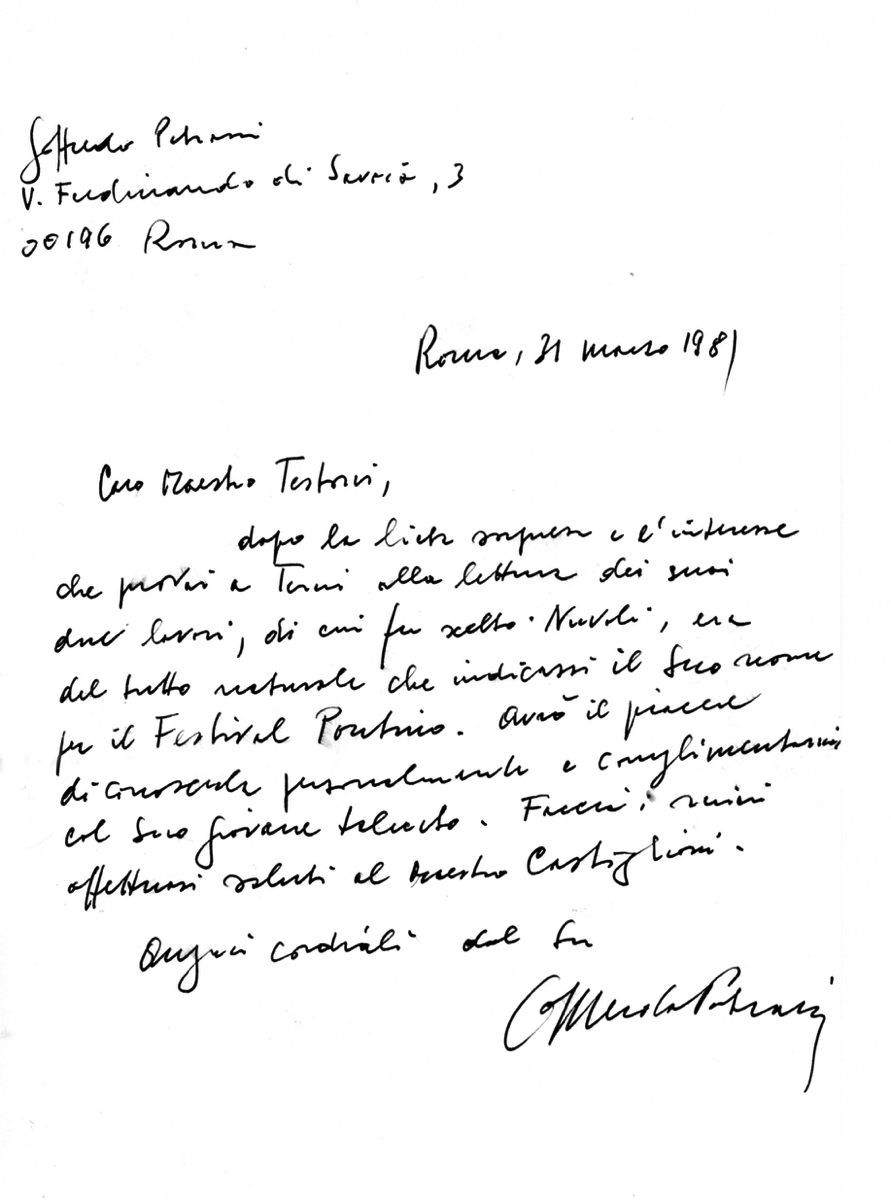 Goffredo Petrassi
V. Ferdinando di Savoia, 3
00196 Roma
Roma, 31 marzo 1981
Caro Maestro Testoni,
dopo la lieta sorpresa e l'interesse
che provai a Terni alla lettura dei suoi
due lavori, di cui fu scelto "Nuvoli", era
del tutto naturale che indicassi il Suo nome
per il Festival Pontino. Avrò il piacere
di conoscerla personalmente e complimentarmi
col Suo giovane talento. Faccia i miei
affettuosi saluti al Maestro Castiglioni.
Auguri cordiali dal Suo
Goffredo Petrassi